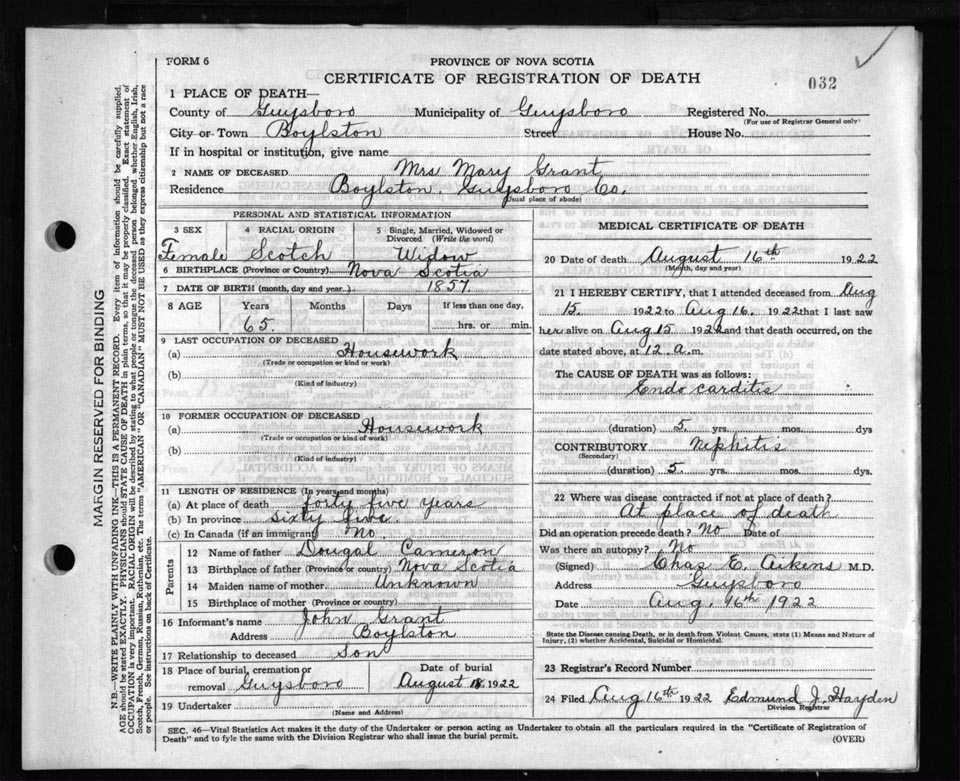 FORM 6
PROVINCE OF NOVA SCOTIA
CERTIFICATE OF REGISTRATION OF DEATH
032
1 PLACE OF DEATH—
County of Guysboro Municipality of Guysboro Registered No.
(For use of Registrar General only)
City or Town Boylston Street House No.
If in hospital or institution, give name
2 NAME OF DECEASED Mrs Mary Grant
Residence Boylston, Guysboro Co.
(Usual place of abode)
PERSONAL AND STATISTICAL INFORMATION
3 SEX
Female
4 RACIAL ORIGIN
Scotch
5 Single, Married, Widowed or Divorced (Write the word)
Widow
6 BIRTHPLACE (Province or Country) Nova Scotia
7 DATE OF BIRTH (month, day and year) 1857
8 AGE Years Months Days If less than one day,
65. hrs. or min.
9 LAST OCCUPATION OF DECEASED
(a) Housework
(Trade or occupation or kind of work)
(b)
(Kind of industry)
10 FORMER OCCUPATION OF DECEASED
(a) Housework
(Trade or occupation or kind of work)
(b)
(Kind of industry)
11 LENGTH OF RESIDENCE (In years and months)
(a) At place of death forty five years
(b) In province sixty five.
(c) In Canada (if an immigrant) No.
Parents
12 Name of father Dougal Cameron
13 Birthplace of father (Province or country) Nova Scotia
14 Maiden name of mother Unknown
15 Birthplace of mother (Province or country)
16 Informant's name John Grant
Address Boylston
17 Relationship to deceased Son
18 Place of burial, cremation or removal Guysboro
Date of burial
August 18. 1922
19 Undertaker
(Name and Address)
MEDICAL CERTIFICATE OF DEATH
20 Date of death August 16th 1922
(Month, day and year)
21 I HEREBY CERTIFY, that I attended deceased from Aug
15. 1922 to Aug 16. 1922 that I last saw
her alive on Aug 15 1922 and that death occurred, on the
date stated above, at 12. a.m.
The CAUSE OF DEATH was as follows:
Endo carditis
(duration) 5 yrs. mos. dys
CONTRIBUTORY Nephitis
(Secondary)
(duration) 5. yrs. mos. dys.
22 Where was disease contracted if not at place of death?
At place of death
Did an operation precede death? No Date of
Was there an autopsy? No
(Signed) Chas E. Aikens M.D.
Address Guysboro
Date Aug. 16th 1922
State the Disease causing Death, or in death from Violent Causes, state (1) Means and Nature of
Injury, (2) whether Accidental, Suicidal or Homicidal.
23 Registrar's Record Number
24 Filed Aug 16th 1922 Edmund J. Hayden
Division Registrar
SEC. 46—Vital Statistics Act makes it the duty of the Undertaker or person acting as Undertaker to obtain all the particulars required in the "Certificate of Registration of
Death" and to fyle the same with the Division Registrar who shall issue the burial permit.
(OVER)
MARGIN RESERVED FOR BINDING
N.B.—WRITE PLAINLY WITH UNFADING INK—THIS IS A PERMANENT RECORD. Every item of information should be carefully supplied.
AGE should be stated EXACTLY. PHYSICIANS should STATE CAUSE OF DEATH in plain terms, so that it may be properly classified. Exact statement of
OCCUPATION is very important. RACIAL ORIGIN will be described by stating to what people or tongue the deceased person belonged whether English, Irish,
Scotch, French, German, Russian, Ruthenian, etc. The terms "AMERICAN" OR "CANADIAN" MUST NOT BE USED as they express citizenship but not a race
or people. See instructions on back of Certificate.